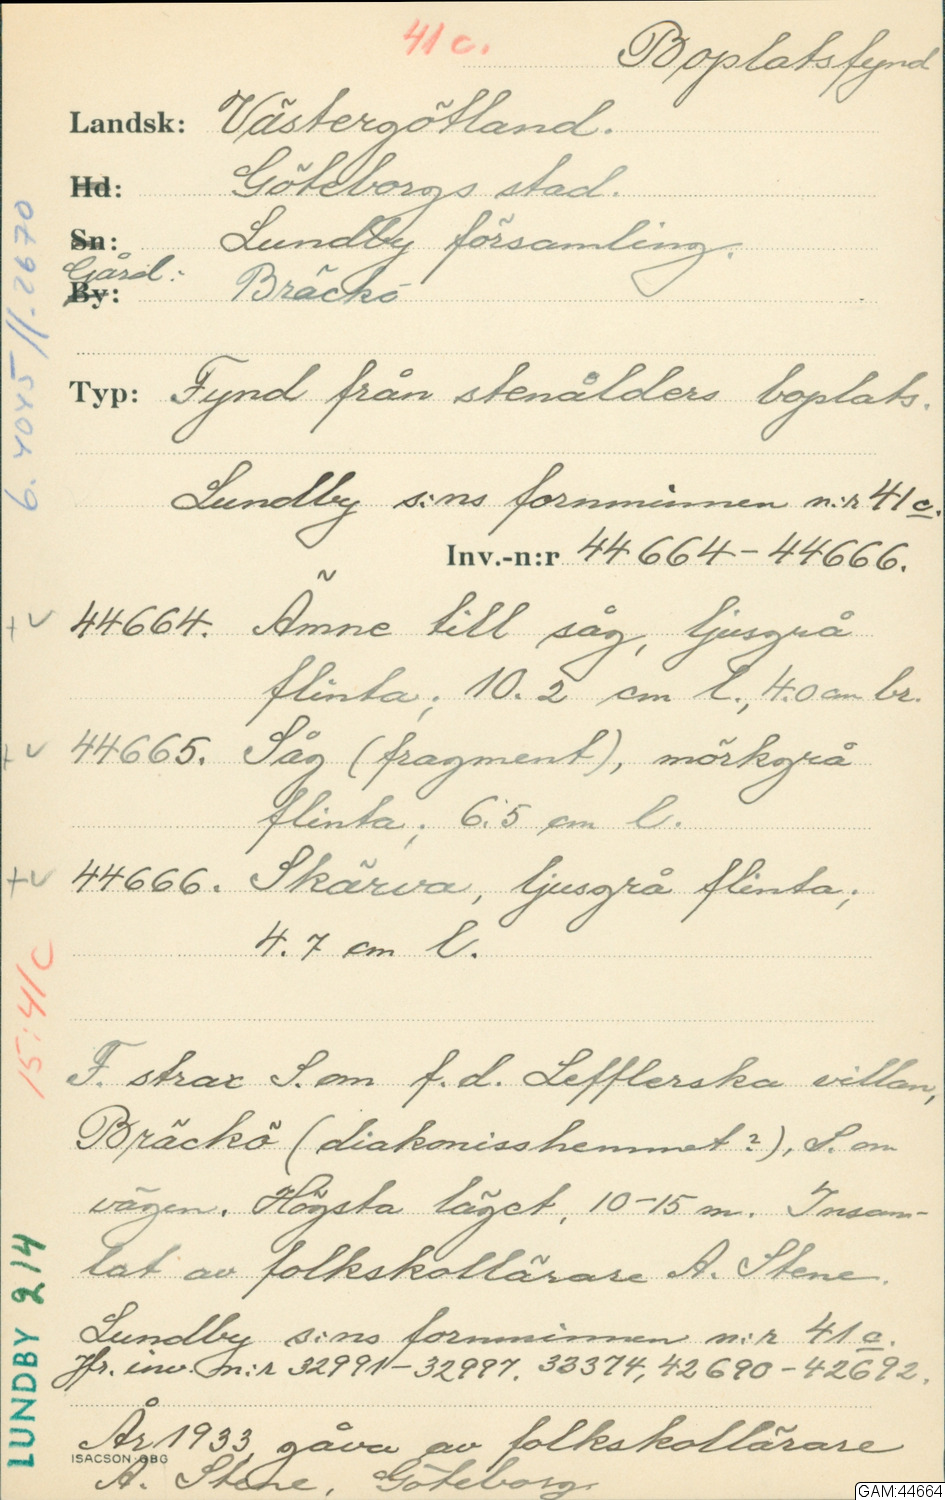 41 c.
Boplatsfynd
Landsk: Västergötland.
Hd: Göteborgs stad.
Sn: Lundby församling.
Gård:
By: Bräckö
Typ: Fynd från stenålders boplats.
Lundby s:ns fornminnen n:r 41 c.
Inv.-n:r 44664-44666.
44664. Ämne till såg, ljusgrå
flinta; 10.2 cm l., 4.0 cm br.
44665. Såg (fragment), mörkgrå
flinta; 6.5 cm l.
44666. Skärva, ljusgrå flinta;
4.7 cm l.
F. strax S. om f.d. Lefflerska villan,
Bräckö (diakonisshemmet?), S. om
vägen. Högsta läget, 10-15 m. Insam-
lat av folkskollärare A. Stene.
Lundby s:ns fornminnen n:r 41 c.
Jfr. inv. n:r 32991-32997. 33374, 42690-42692.
År 1933, gåva av folkskollärare
ISACSON·GBG
A. Stene, Göteborg.
6. 4045 //-2670
15:41c
LUNDBY 214
GAM:44664